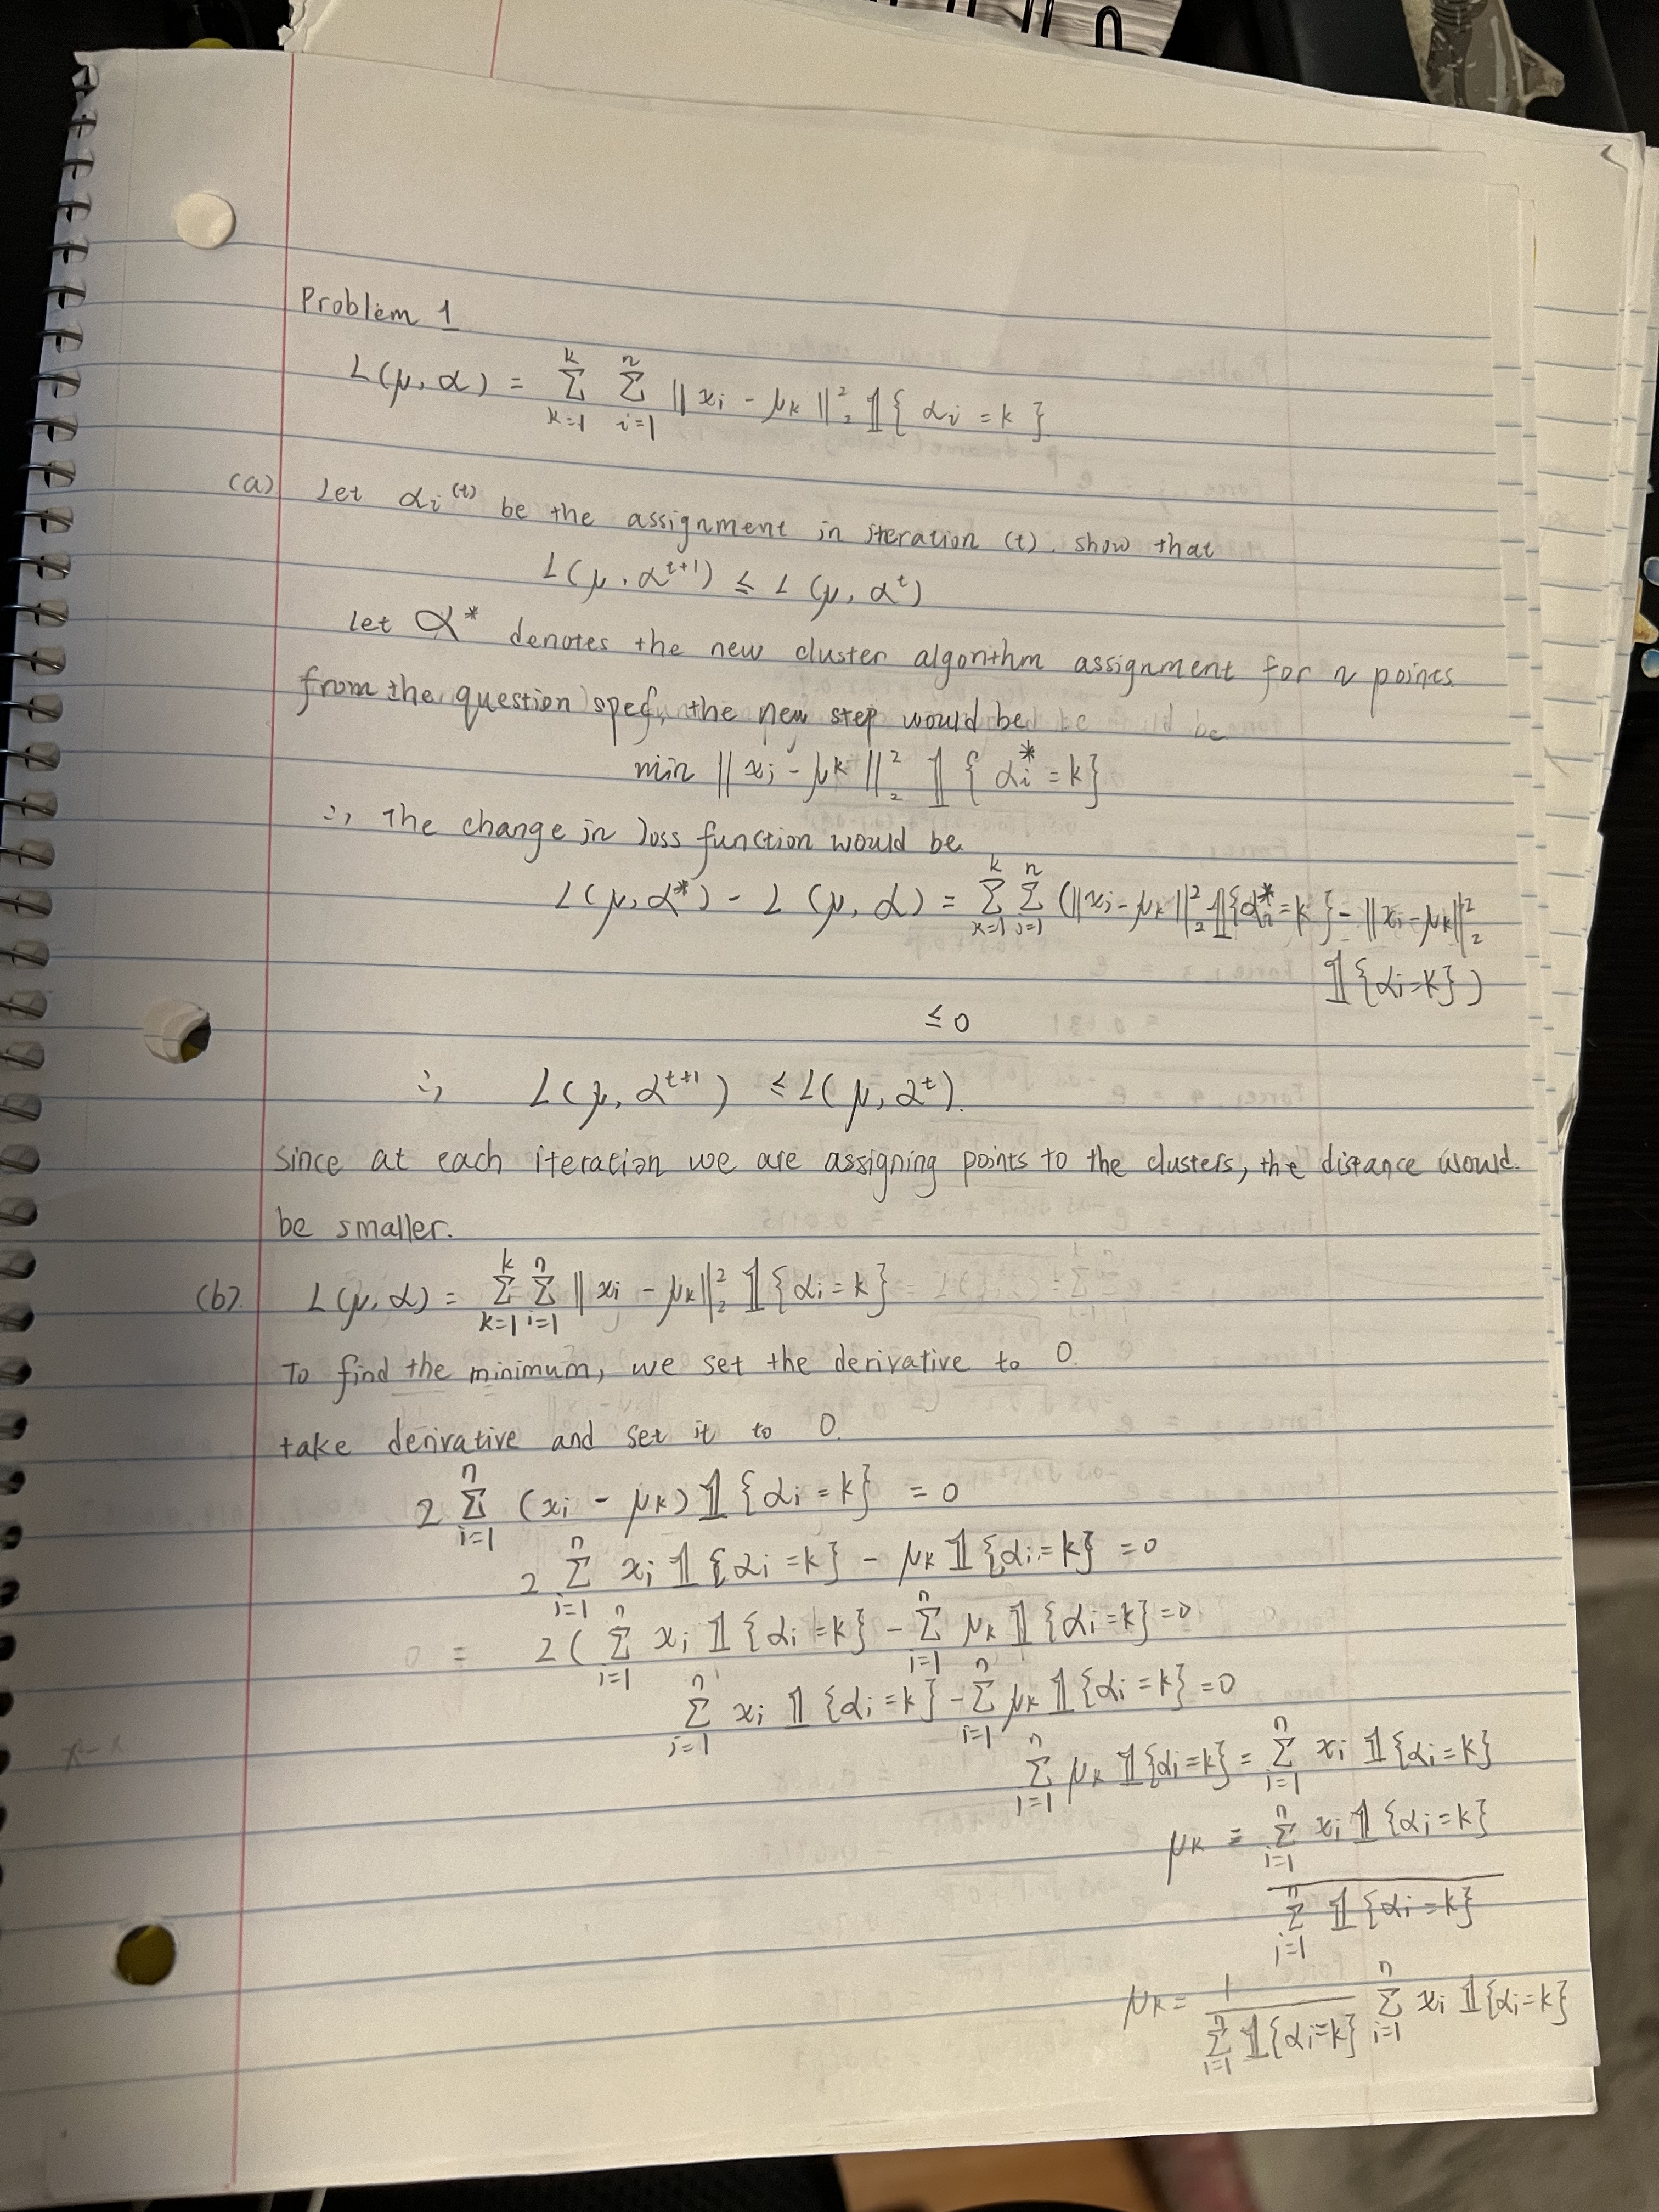 Problem 1
L(μ, α) = Σ_{k=1}^{k} Σ_{i=1}^{n} ‖xi - μk‖²₂ 𝟙{αi = k}
(a) Let αi^(t) be the assignment in iteration (t). show that
L(μ, α^{t+1}) ≤ L(μ, α^t)
let α* denotes the new cluster algorithm assignment for n points
from the question spec, the new step would be
min ‖xi - μk‖²₂ 𝟙{αi* = k}
∴, The change in loss function would be
L(μ, α*) - L(μ, α) = Σ_{k=1}^{k} Σ_{i=1}^{n} (‖xi - μk‖²₂ 𝟙{αi* = k} - ‖xi - μk‖²₂
𝟙{αi = k})
≤ 0
∴, L(μ, α^{t+1}) ≤ L(μ, α^t).
since at each iteration we are assigning points to the clusters, the distance would
be smaller.
(b). L(μ, α) = Σ_{k=1}^{k} Σ_{i=1}^{n} ‖xi - μk‖²₂ 𝟙{αi = k}
To find the minimum, we set the derivative to 0.
take derivative and set it to 0.
2 Σ_{i=1}^{n} (xi - μk) 𝟙{αi = k} = 0
2 Σ_{i=1}^{n} xi 𝟙{αi = k} - μk 𝟙{αi = k} = 0
2 (Σ_{i=1}^{n} xi 𝟙{αi = k} - Σ_{i=1}^{n} μk 𝟙{αi = k} = 0
Σ_{i=1}^{n} xi 𝟙{αi = k} - Σ_{i=1}^{n} μk 𝟙{αi = k} = 0
Σ_{i=1}^{n} μk 𝟙{αi = k} = Σ_{i=1}^{n} xi 𝟙{αi = k}
μk = Σ_{i=1}^{n} xi 𝟙{αi = k}
Σ_{i=1}^{n} 𝟙{αi = k}
μk = 1 / Σ_{i=1}^{n} 𝟙{αi = k} Σ_{i=1}^{n} xi 𝟙{αi = k}